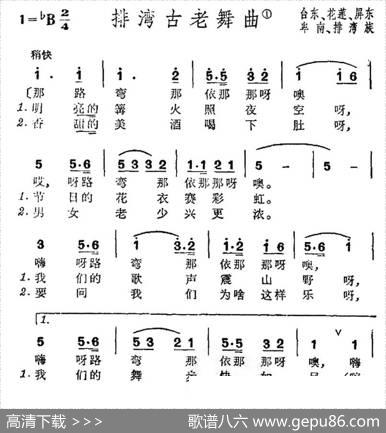 1=♭B 2/4 排湾古老舞曲① 台东、花莲、屏东
卑南、排湾族
稍快
1· 1 | 1· 2 | 5·5 3 2 | 1 1 6 |
〔那路弯那依那那呀噢
1.明亮的篝火照夜空呀,
2.香甜的美酒喝下肚呀,
5 5·6 | 5 3 3 2 | 1·1 2 1 | 5 - | 5 - |
哎,呀路弯那依那那呀噢。
1.节日的花衣赛彩虹。
2.男女老少兴更浓。
3 5·6 | 1 3·2 | 1·2 1 6 | 5 5·6 |
嗨呀路弯那依那那呀噢,
1.我们的歌声震山野呀,
2.要问我们为啥这样乐呀,
1.
5 5·6 | 5 3 2 1 |
嗨呀路弯那依那那呀噢,嗨
1.我们的舞
高清下载 >>> 歌谱八六 www.gepu86.com